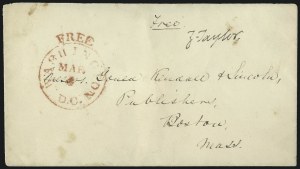 FREE
Free
Z. Taylor
WASHINGTON D.C.
MAR
Gould, Kendall & Lincoln,
Publishers,
Boston,
Mass.